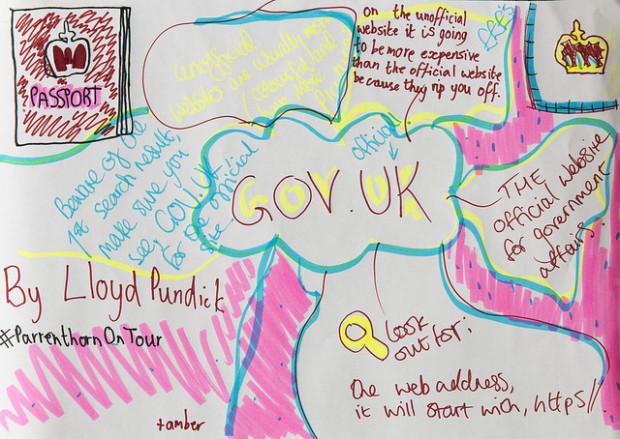 PASSPORT
unofficial
websites are usually more
colourful and
on the unofficial
website it is going
to be more expensive
than the official website
because they rip you off.
Beware of the
1st search result,
make sure you
see GOV.UK
for the official
site
official
GOV.UK
THE
official website
for government
affairs
By Lloyd Pundick
#ParrenthornOnTour
+amber
Look
out for:
the web address,
it will start with, https//